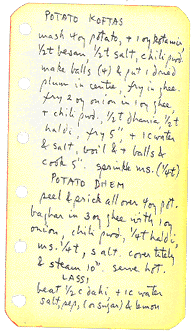 POTATO KOFTAS
mash 4oz potato, + 1oz kotamir,
½t besan, ½t salt, chili pwd.
make balls (4) & put 1 dried
plum in centre, fry in ghee.
fry 2oz onion in 1oz ghee,
+ chili pwd. ½t dhania ½t
haldi, fry 5", + 1c water
& salt, boil & + balls &
cook 5". sprinkle ms. (¼t)
POTATO DHEM
peel & prick all over 4oz pot.
baghar in 3oz ghee with 1oz
onion, chili pwd, ¼t haldi,
ms. ¼t, salt. cover titely
& steam 10". serve hot.
LASSI
beat ½c dahi + 1c water
salt, pep, (or sugar) & lemon